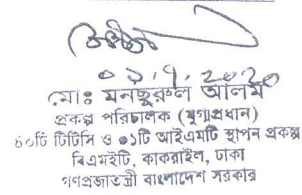 ০১.৭.২০২০
মোঃ মনছুরুল আলম
প্রকল্প পরিচালক (যুগ্মপ্রধান)
৪০টি টিটিসি ও ০১টি আইএমটি স্থাপন প্রকল্প
বিএমইটি, কাকরাইল, ঢাকা
গণপ্রজাতন্ত্রী বাংলাদেশ সরকার